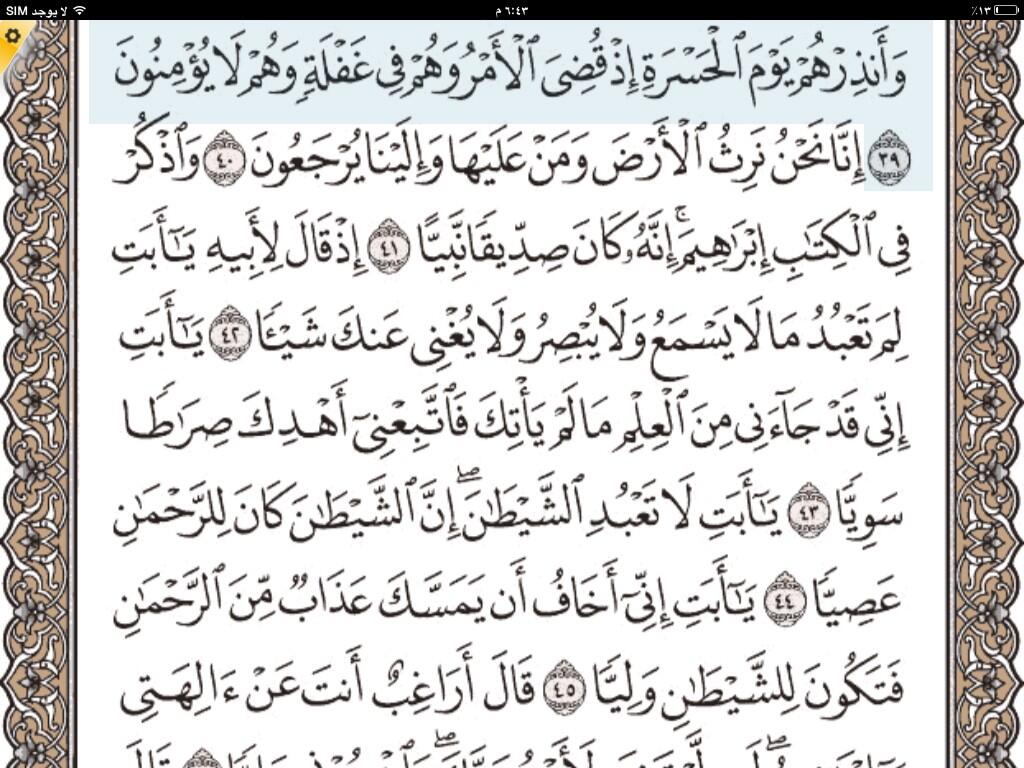 لا يوجد SIM ٦:٤٣ م ٪١٣
وَأَنذِرْهُمْ يَوْمَ ٱلْحَسْرَةِ إِذْ قُضِىَ ٱلْأَمْرُ وَهُمْ فِى غَفْلَةٍ وَهُمْ لَا يُؤْمِنُونَ
٣٩ إِنَّا نَحْنُ نَرِثُ ٱلْأَرْضَ وَمَنْ عَلَيْهَا وَإِلَيْنَا يُرْجَعُونَ ٤٠ وَٱذْكُرْ
فِى ٱلْكِتَٰبِ إِبْرَٰهِيمَ ۚ إِنَّهُۥ كَانَ صِدِّيقًا نَّبِيًّا ٤١ إِذْ قَالَ لِأَبِيهِ يَٰٓأَبَتِ
لِمَ تَعْبُدُ مَا لَا يَسْمَعُ وَلَا يُبْصِرُ وَلَا يُغْنِى عَنكَ شَيْـًٔا ٤٢ يَٰٓأَبَتِ
إِنِّى قَدْ جَآءَنِى مِنَ ٱلْعِلْمِ مَا لَمْ يَأْتِكَ فَٱتَّبِعْنِىٓ أَهْدِكَ صِرَٰطًا
سَوِيًّا ٤٣ يَٰٓأَبَتِ لَا تَعْبُدِ ٱلشَّيْطَٰنَ ۖ إِنَّ ٱلشَّيْطَٰنَ كَانَ لِلرَّحْمَٰنِ
عَصِيًّا ٤٤ يَٰٓأَبَتِ إِنِّىٓ أَخَافُ أَن يَمَسَّكَ عَذَابٌ مِّنَ ٱلرَّحْمَٰنِ
فَتَكُونَ لِلشَّيْطَٰنِ وَلِيًّا ٤٥ قَالَ أَرَاغِبٌ أَنتَ عَنْ ءَالِهَتِى